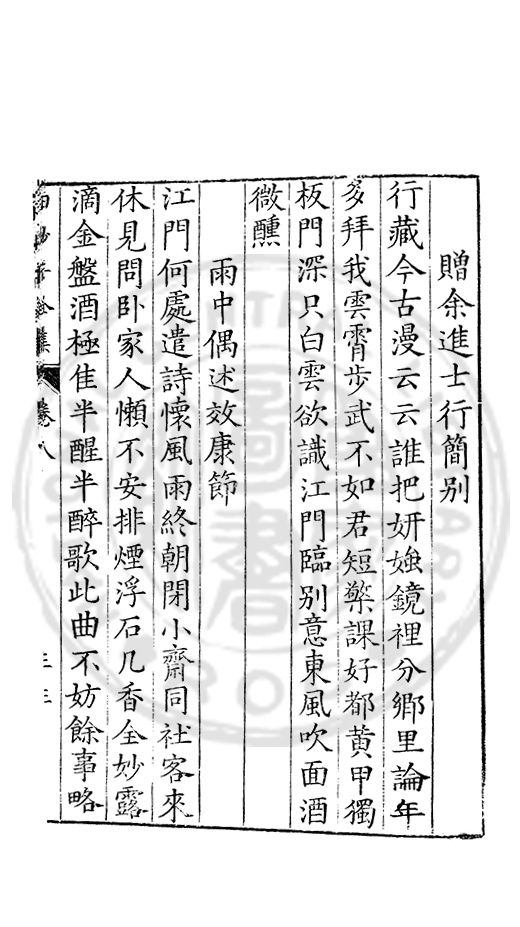 贈余進士行簡别
行藏今古漫云云誰把妍媸鏡裡分鄉里論年
多拜我雲霄步武不如君短檠課好都黃甲獨
板門深只白雲欲識江門臨别意東風吹面酒
微醺
雨中偶述效康節
江門何處遣詩懷風雨終朝閉小齋同社客來
休見問卧家人懶不安排煙浮石几香全妙露
滴金盤酒極佳半醒半醉歌此曲不妨餘事略
卷八